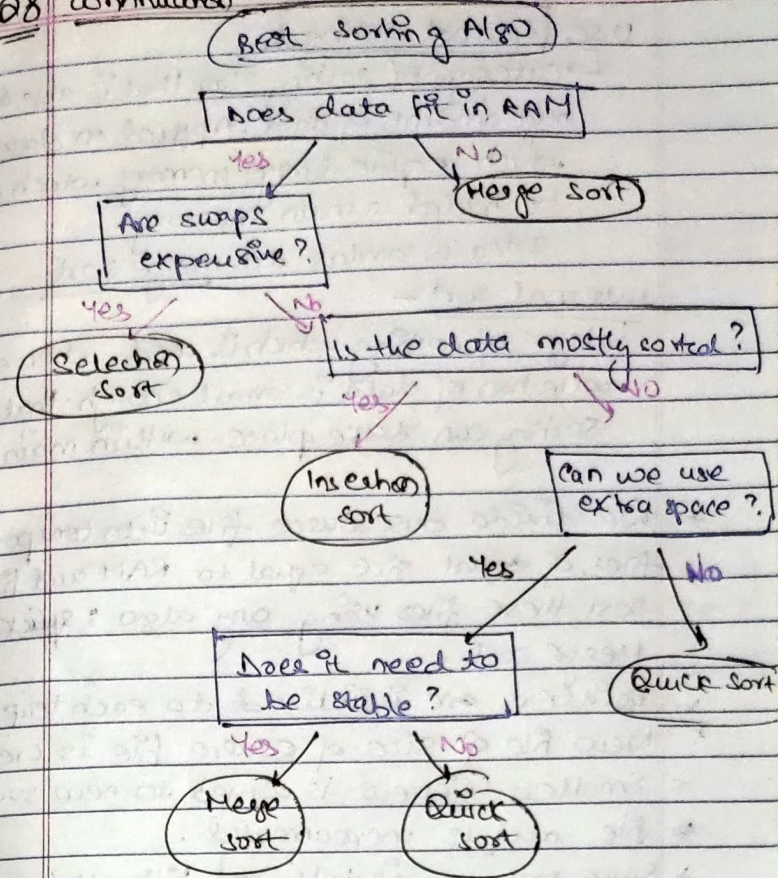 Best Sorting Algo
Does data fit in RAM
Yes
NO
Merge Sort
Are swaps
expensive?
Yes
No
Selection
Sort
Is the data mostly sorted?
Yes
NO
Insertion
sort
Can we use
extra space?
Yes
No
Does it need to
be stable?
Quick Sort
Yes
No
Merge
sort
Quick
sort